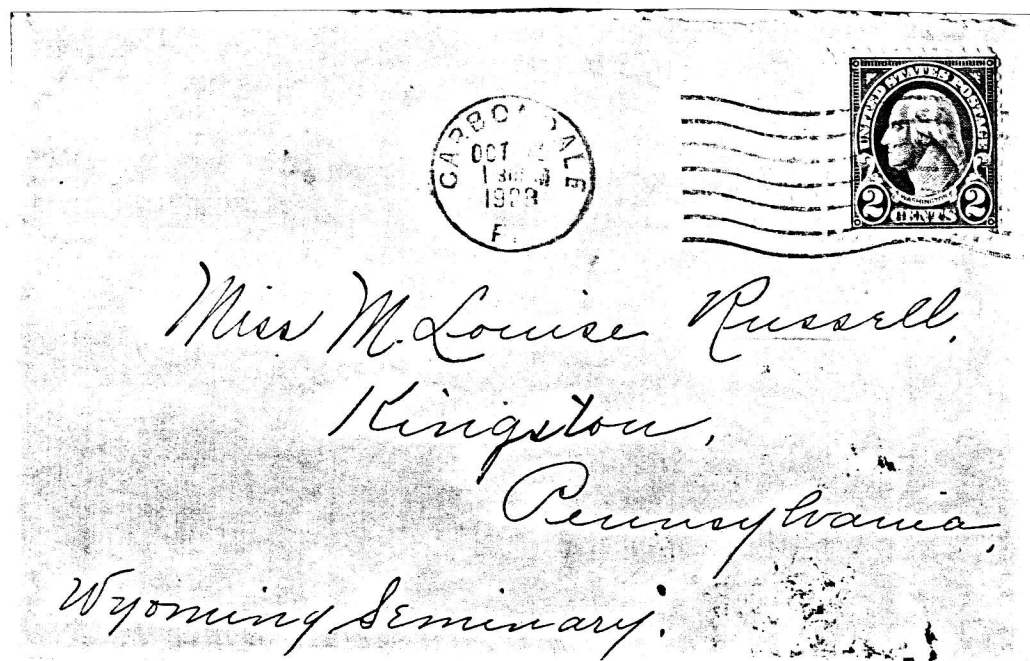 CARBONDALE
OCT
1928
UNITED STATES POSTAGE
WASHINGTON
2 CENTS 2
Miss M. Louise Russell,
Kingston,
Pennsylvania,
Wyoming Seminary.